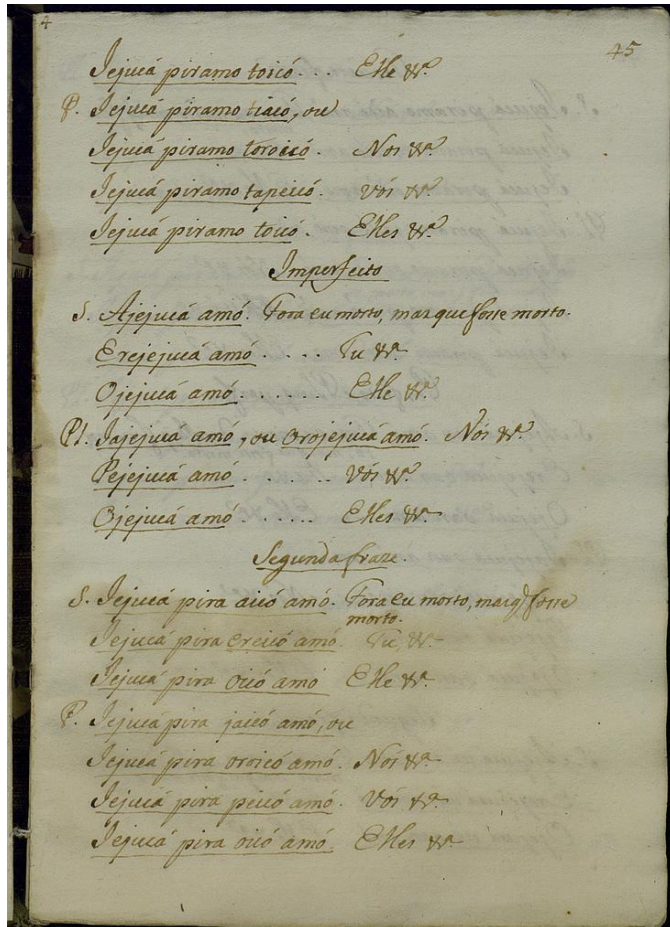 4
45
Jejucá piramo toicó . . . Elle &ª.
P. Jejucá piramo tiaicó, ou
Jejucá piramo toroicó . Nos &ª.
Jejucá piramo tapeicó . Vós &ª.
Jejucá piramo toicó . Elles &ª.
Imperfeito
S. Ajejucá amó. Fora eu morto, mas que fosse morto.
Erejejucá amó . . . . Tu &ª.
Ojejucá amó . . . . . . Elle &ª.
Pl. Iajejucá amó, ou Orojejucá amó. Nós &ª.
Pejejucá amó . . . . . . Vós &ª.
Ojejucá amó . . . . . Elles &ª.
Segunda fraze.
S. Jejucá pira aicó amó. Fora eu morto, mas q̃ fosse
morto.
Jejucá pira ereicó amó. Tu, &ª.
Jejucá pira oicó amó Elle &ª.
P. Jejucá pira jaicó amó, ou
Jejucá pira oroicó amó. Nós &ª.
Jejucá pira peicó amó. Vós &ª.
Jejucá pira oicó amó. Elles &ª.